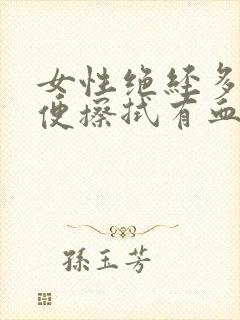 女性绝经多
便擦拭有血
孫玉芳